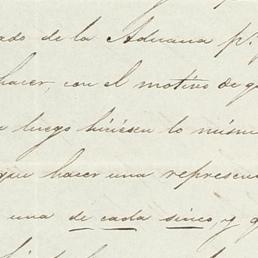 ado de la Aduana p.r
hacer, con el motivo de q
luego hiciésen lo mism
que hacer una represen
una de cada cinco, y q